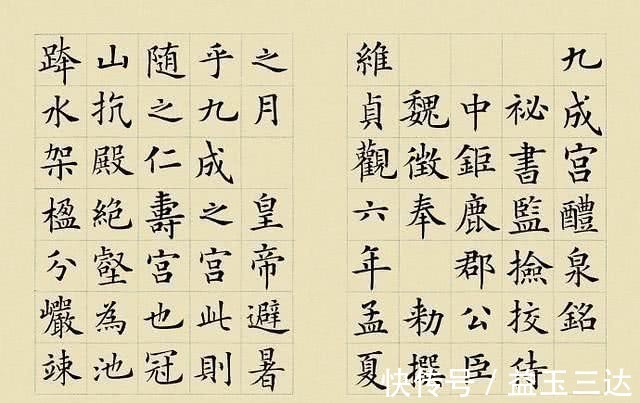 九成宫醴泉銘
祕書監撿挍侍
中鉅鹿郡公臣
魏徵奉 勅撰
維貞觀六年孟夏
之月 皇帝避暑
乎九成之宫此則
随之仁壽宫也冠
山抗殿絶壑為池
跨水架楹分巖竦
快传号 / 益玉三达